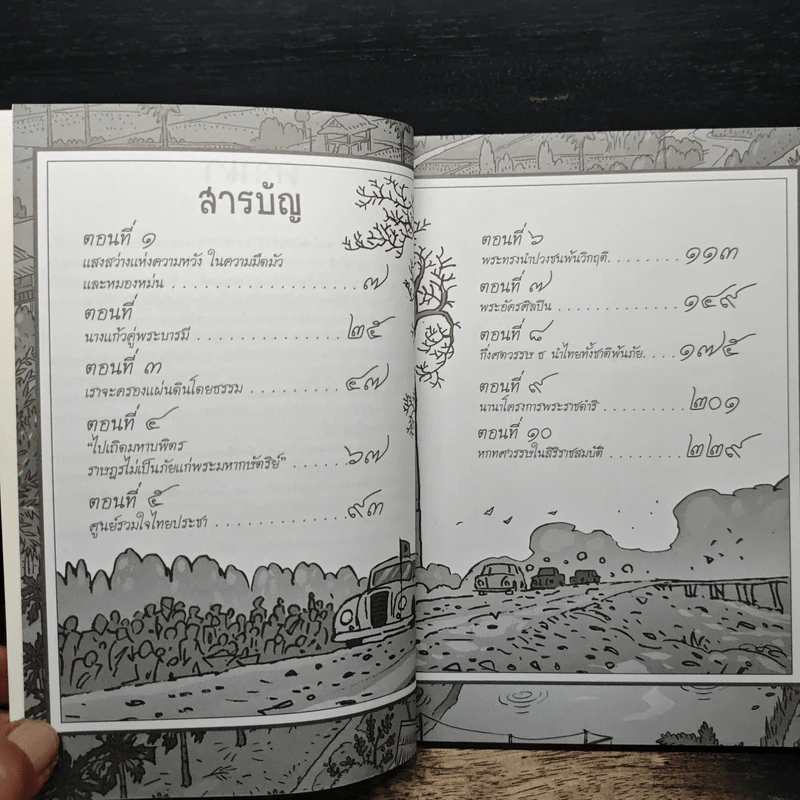 สารบัญ
ตอนที่ ๑
แสงสว่างแห่งความหวัง ในความมืดมัว
และหมองหม่น . . . . . . . . . . . . . . . . . . . . ๗
ตอนที่
นางแก้วคู่พระบารมี . . . . . . . . . . . . . . . . ๒๕
ตอนที่ ๓
เราจะครองแผ่นดินโดยธรรม . . . . . . . . . . ๔๗
ตอนที่ ๔
“ไปเถิดมหาบพิตร
ราษฎรไม่เป็นภัยแก่พระมหากษัตริย์” . . . . . . ๖๗
ตอนที่ ๕
ศูนย์รวมใจไทยประชา . . . . . . . . . . . . . . ๙๓
ตอนที่ ๖
พระทรงนำปวงชนพ้นวิกฤติ. . . . . . . . . ๑๑๓
ตอนที่ ๗
พระอัครศิลปิน . . . . . . . . . . . . . . . . ๑๔๙
ตอนที่ ๘
กึ่งศตวรรษ ธ นำไทยทั้งชาติพ้นภัย. . . . ๑๗๕
ตอนที่ ๙
นานาโครงการพระราชดำริ . . . . . . . . . ๒๐๑
ตอนที่ ๑๐
หกทศวรรษในสิริราชสมบัติ . . . . . . . . ๒๒๙